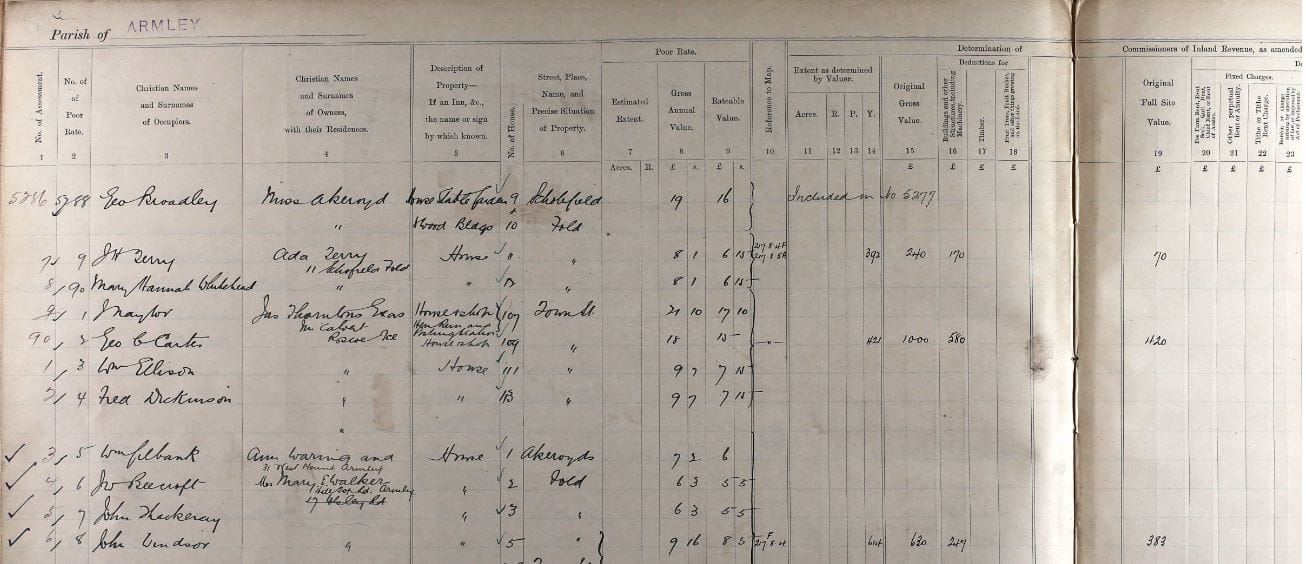 Parish of ARMLEY
No. of Assessment. 1
No. of Poor Rate. 2
Christian Names and Surnames of Occupiers. 3
Christian Names and Surnames of Owners, with their Residences. 4
Description of Property— If an Inn, &c., the name or sign by which known. 5
No. of House.
Street, Place, Name, and Precise Situation of Property. 6
Poor Rate.
Estimated Extent. 7 Acres. R.
Gross Annual Value. 8 £ s.
Rateable Value. 9 £ s.
Reference to Map. 10
Determination of
Extent as determined by Valuer.
Acres. R. P. Y.
11 12 13 14
Original Gross Value. 15 £
Deductions for
Buildings and other Structures, including Machinery. 16 £
Timber. 17 £
Fruit Trees, Fruit Bushes, and other things growing on the Land. 18 £
Commissioners of Inland Revenue, as amended
Original Full Site Value. 19 £
Fixed Charges.
20 £
Other perpetual Rent or Annuity. 21 £
Tithe or Tithe Rent Charge. 22 £
23 £
5286 5288 Geo Broadley Miss Akeroyd House Stable Garden 9 Scholefield 19 16 Included in No 5277
" & Wood Bldgs 10 Fold
9 J H Terry Ada Terry House " " 8 1 6 15 392 240 170 70
11 Schofields Fold
8 90 Mary Hannah Whitehead " " 12 " 8 1 6 15
1 J Naylor Jas Thorntons Exors House & shop 107 Town St 21 10 17 10
Mr Calvert
90 2 Geo C Carter Roscoe House & shop 109 " 18 15 " 421 1000 580 420
1 3 Wm Ellison " House 111 " 9 7 7 15
2 4 Fred Dickinson " " 113 " 9 7 7 15
"
3 5 Ann Waring and House 1 Akeroyds 7 2 6
31 West Mount Armley
4 6 Jw Beecroft Mrs Mary E Walker " 2 Fold 6 3 5 5
Rd. Armley
5 7 John Thackeray " 3 " 6 3 5 5
6 8 John Windsor " " 5 " 9 16 8 5 217.8.4 614 630 247 383